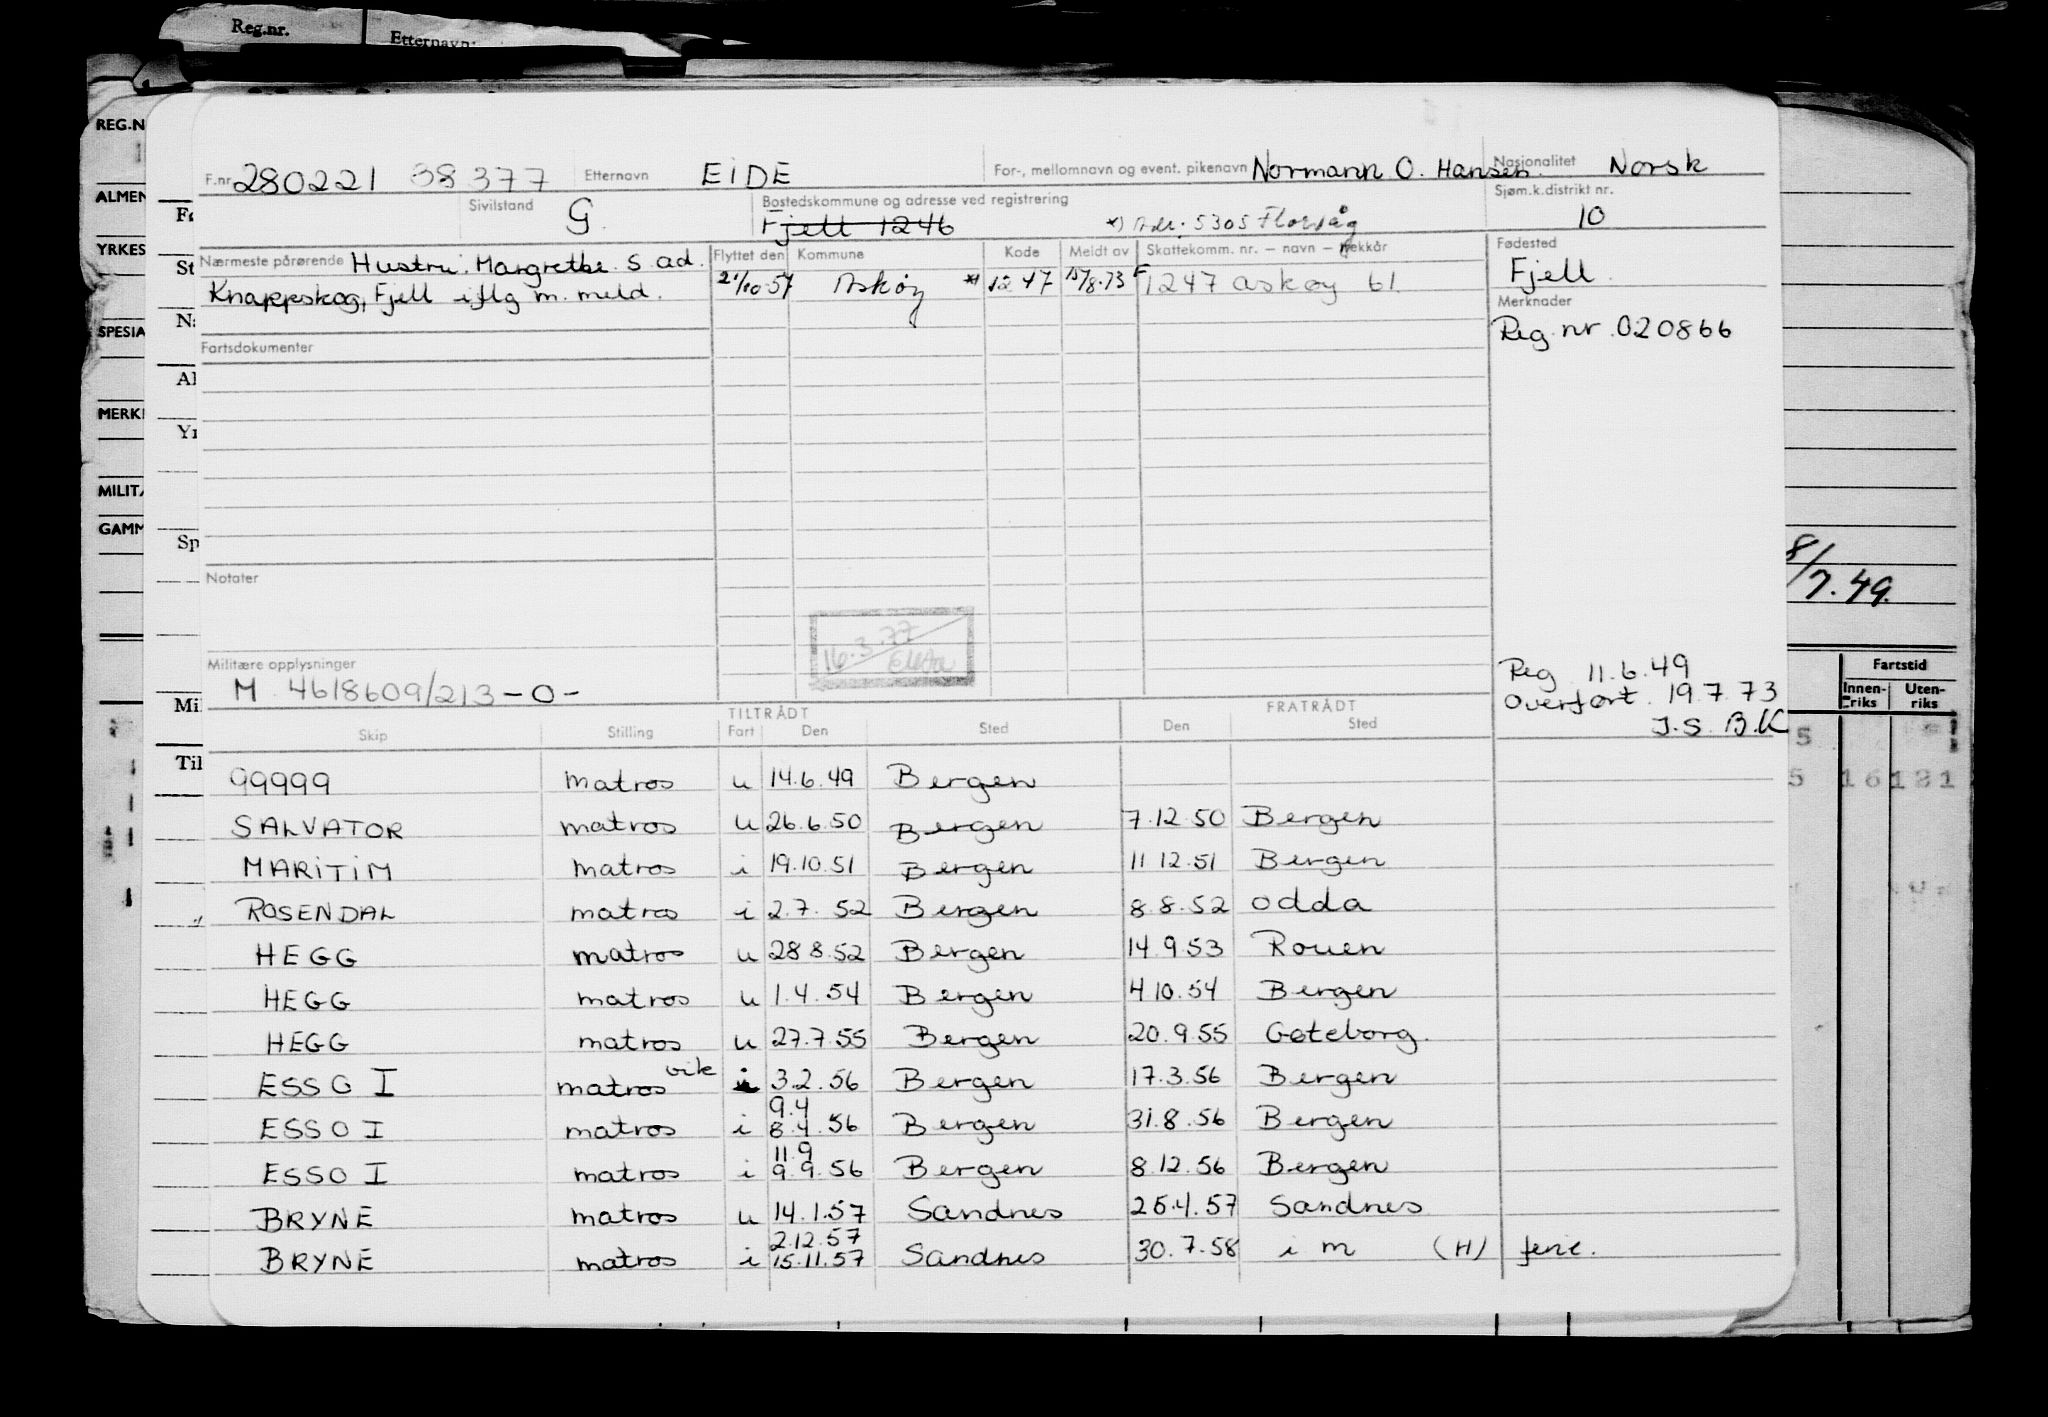 Reg.nr.
Etternavn:
REG.N
ALMEN
YRKES
SPESIA
MERK
MILIT
GAMM
Fø
St
Na
Al
Yr
Sp
Mil
Til
F.nr 280221 38377 Etternavn EIDE For-, mellomnavn og event. pikenavn Normann O. Hansen Nasjonalitet Norsk
Sivilstand G. Bostedskommune og adresse ved registrering Fjell 1246 *) Adr. 5305 Florvåg Sjøm.k.distrikt nr. 10
Nærmeste pårørende Hustru. Margrethe S. ad. Flyttet den Kommune Kode Meldt av Skattekomm. nr. – navn – trekkår Fødested
Knappskog, Fjell iflg m. meld. 21/10-57 Askøy *) 1247 15/8.73 F 1247 Askøy 61. Fjell.
Merknader
Reg. nr. 020866
Fartsdokumenter
Notater
8/7.49.
16.3.77
Militære opplysninger
M 4618609/213-0-
Reg 11.6.49
Overført. 19.7.73
J.S. B.K
Fartstid
Innen-riks Uten-riks
5
5 16 121
TILTRÅDT FRATRÅDT
Skip Stilling Fart Den Sted Den Sted
99999 matros u 14.6.49 Bergen
SALVATOR matros u 26.6.50 Bergen 7.12.50 Bergen
MARITIM matros i 19.10.51 Bergen 11 12.51 Bergen
ROSENDAL matros i 2.7.52 Bergen 8.8.52 Odda
HEGG matros u 28 8.52 Bergen 14.9 53 Rouen
HEGG matros u 1.4.54 Bergen 4 10.54 Bergen
HEGG matros u 27.7.55 Bergen 20.9.55 Gøteborg.
ESSO I matros vik i 3.2.56 Bergen 17.3.56 Bergen
9.4
ESSO I matros i 8.4.56 Bergen 31.8.56 Bergen
11.9
ESSO I matros i 9.9.56 Bergen 8.12.56 Bergen
BRYNE matros u 14.1.57 Sandnes 25.4.57 Sandnes
2.12.57
BRYNE matros i 15.11.57 Sandnes 30.7.58 i m (H) ferie.